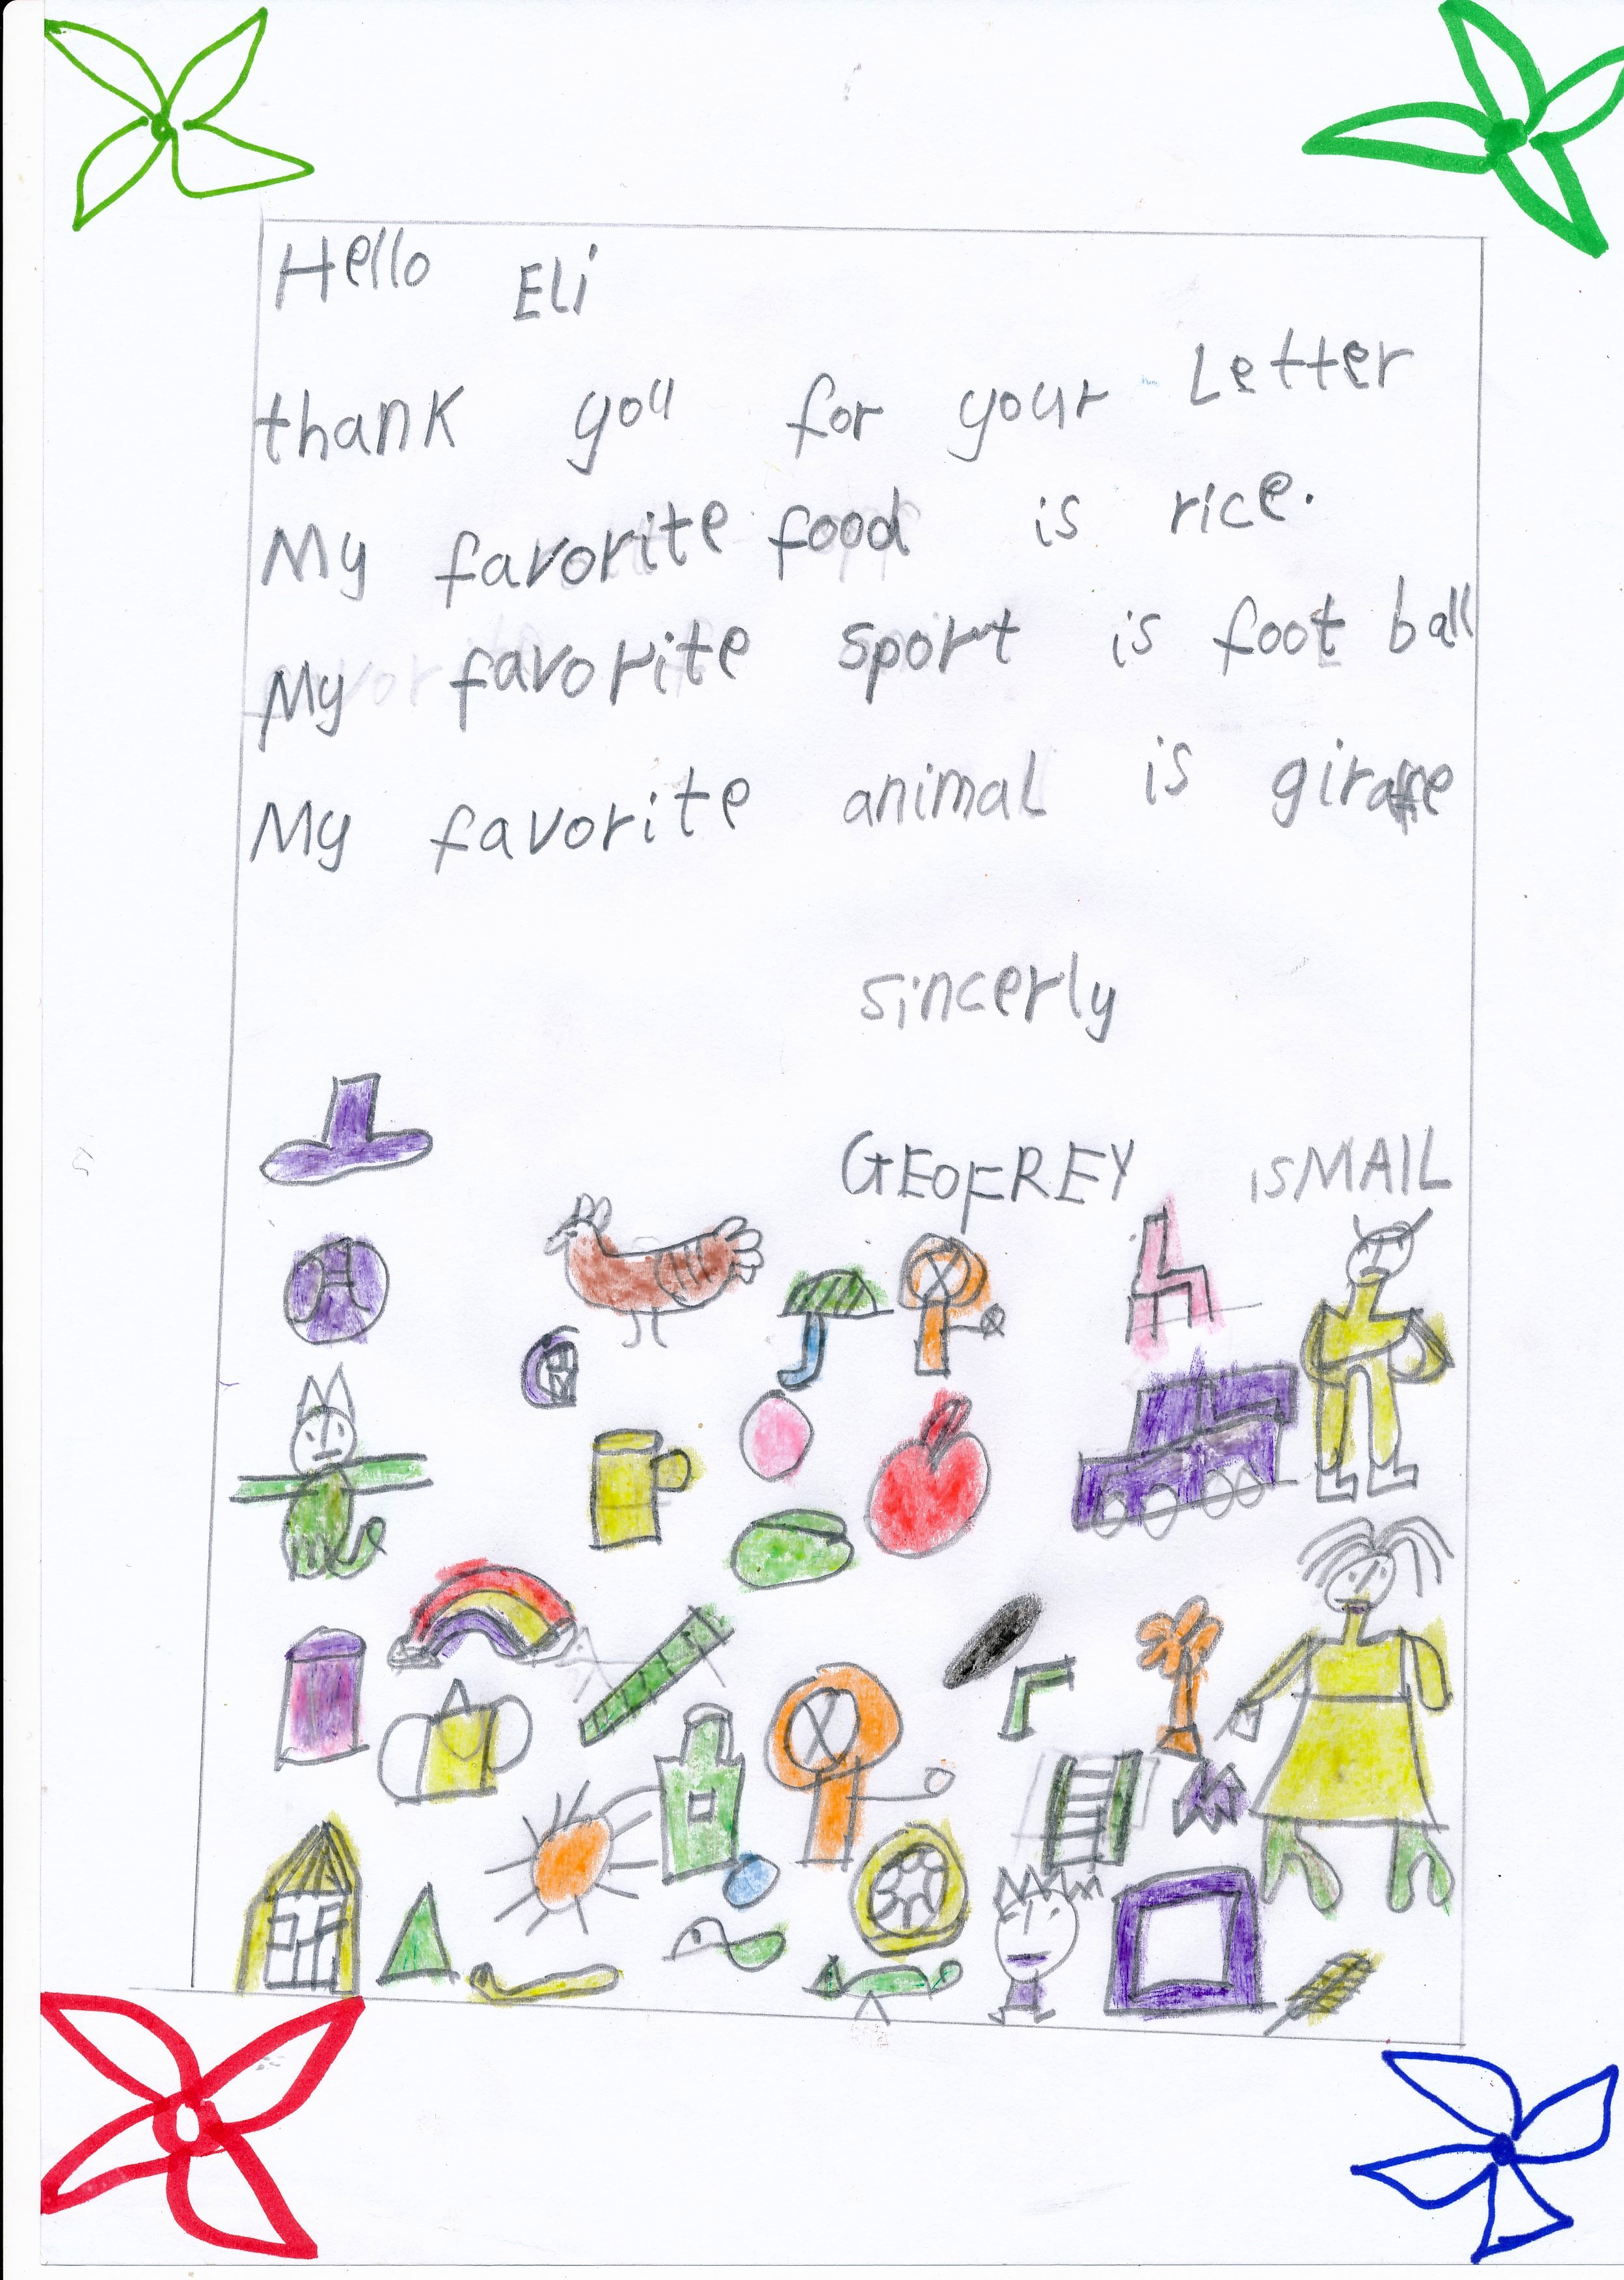 Hello Eli
thank you for your Letter
My favorite food is rice.
My favorite sport is foot ball
My favorite animal is giraffe
sincerly
GEOFREY isMAIL